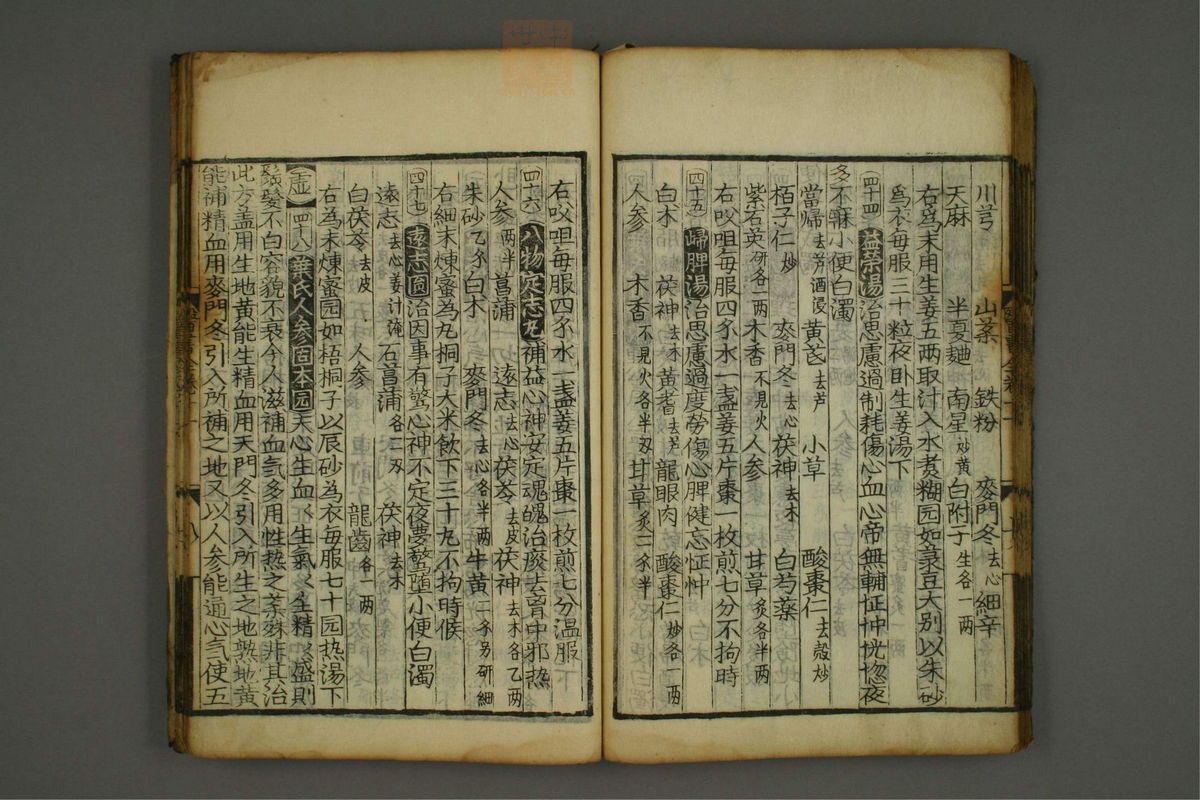 川芎 山藥 鉄粉 麥門冬去心 細辛
天麻 半夏麯 南星炒黄 白附子生各一两
右爲末用生姜五两取汁入水煮糊园如菉豆大别以朱砂
爲衣毎服三十粒夜卧生姜湯下
(四十四)益榮湯治思慮過制耗傷心血心帝無輔怔忡恍惚夜
多不寐小便白濁
當㷌去芦酒浸 黄芪去芦 小草 酸棗仁去殻炒
栢子仁炒 麥門冬去心 茯神去木 白芍藥
紫石英研各一两 木香不見火 人参 甘草炙各半两
右㕮咀毎服四𠆤水一盞姜五片棗一枚煎七分不拘時
(四十五)歸脾湯治思慮過度勞傷心脾健忘怔忡
白木 茯神去木 黄耆去芦 龍眼肉 乾酸棗仁炒各一两
人参 木香不見火各半刄 甘草炙二𠆤半
右㕮咀毎服四𠆤水一盞姜五片棗一枚煎七分温服
(四十六)八物定志丸補益心神安定魂魄治痰去胷中邪热
人参一两半 菖蒲 遠志去心 茯苓去皮 茯神去木各乙两
朱砂乙𠆤 白木 麥門冬去心各半两 牛黄二𠆤另研細
右細末煉蜜為丸桐子大米飲下三十丸不拘時候
(四十七)遠志園治因事有驚心神不定夜夢驚堕小便白濁
逺志去心姜汁淹 石菖蒲各二刄 茯神去木
白茯苓去皮 人参 龍齒各一两
右為末煉蜜园如梧桐子以辰砂為衣毎服七十园热湯下
(虚)四十八葉氏人参固本园夫心生血〻生氣〻生精〻盛則
鬚髮不白容貌不衰今人滋補血気多用性热之藥殊非其治
此方盖用生地黄能生精血用天門冬引入所生之地熟地黄
能補精血用麥門冬引入所補之地又以人参能通心気使五